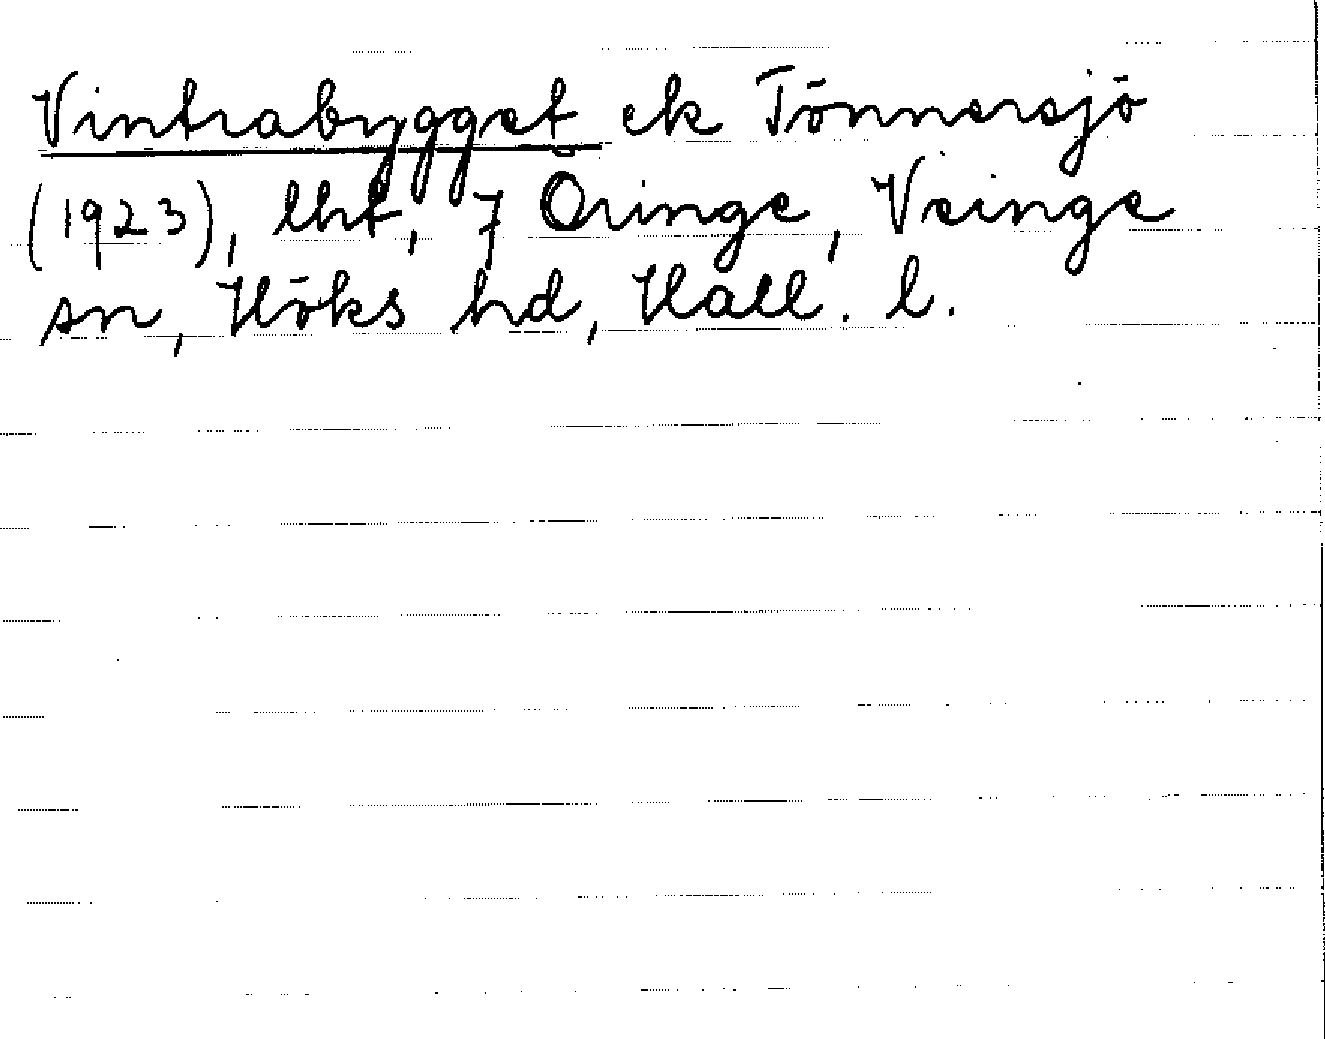 Vintrabygget ek Tönnersjö
(1923), lht, 7 Öringe, Veinge
sn, Höks hd, Hall. l.